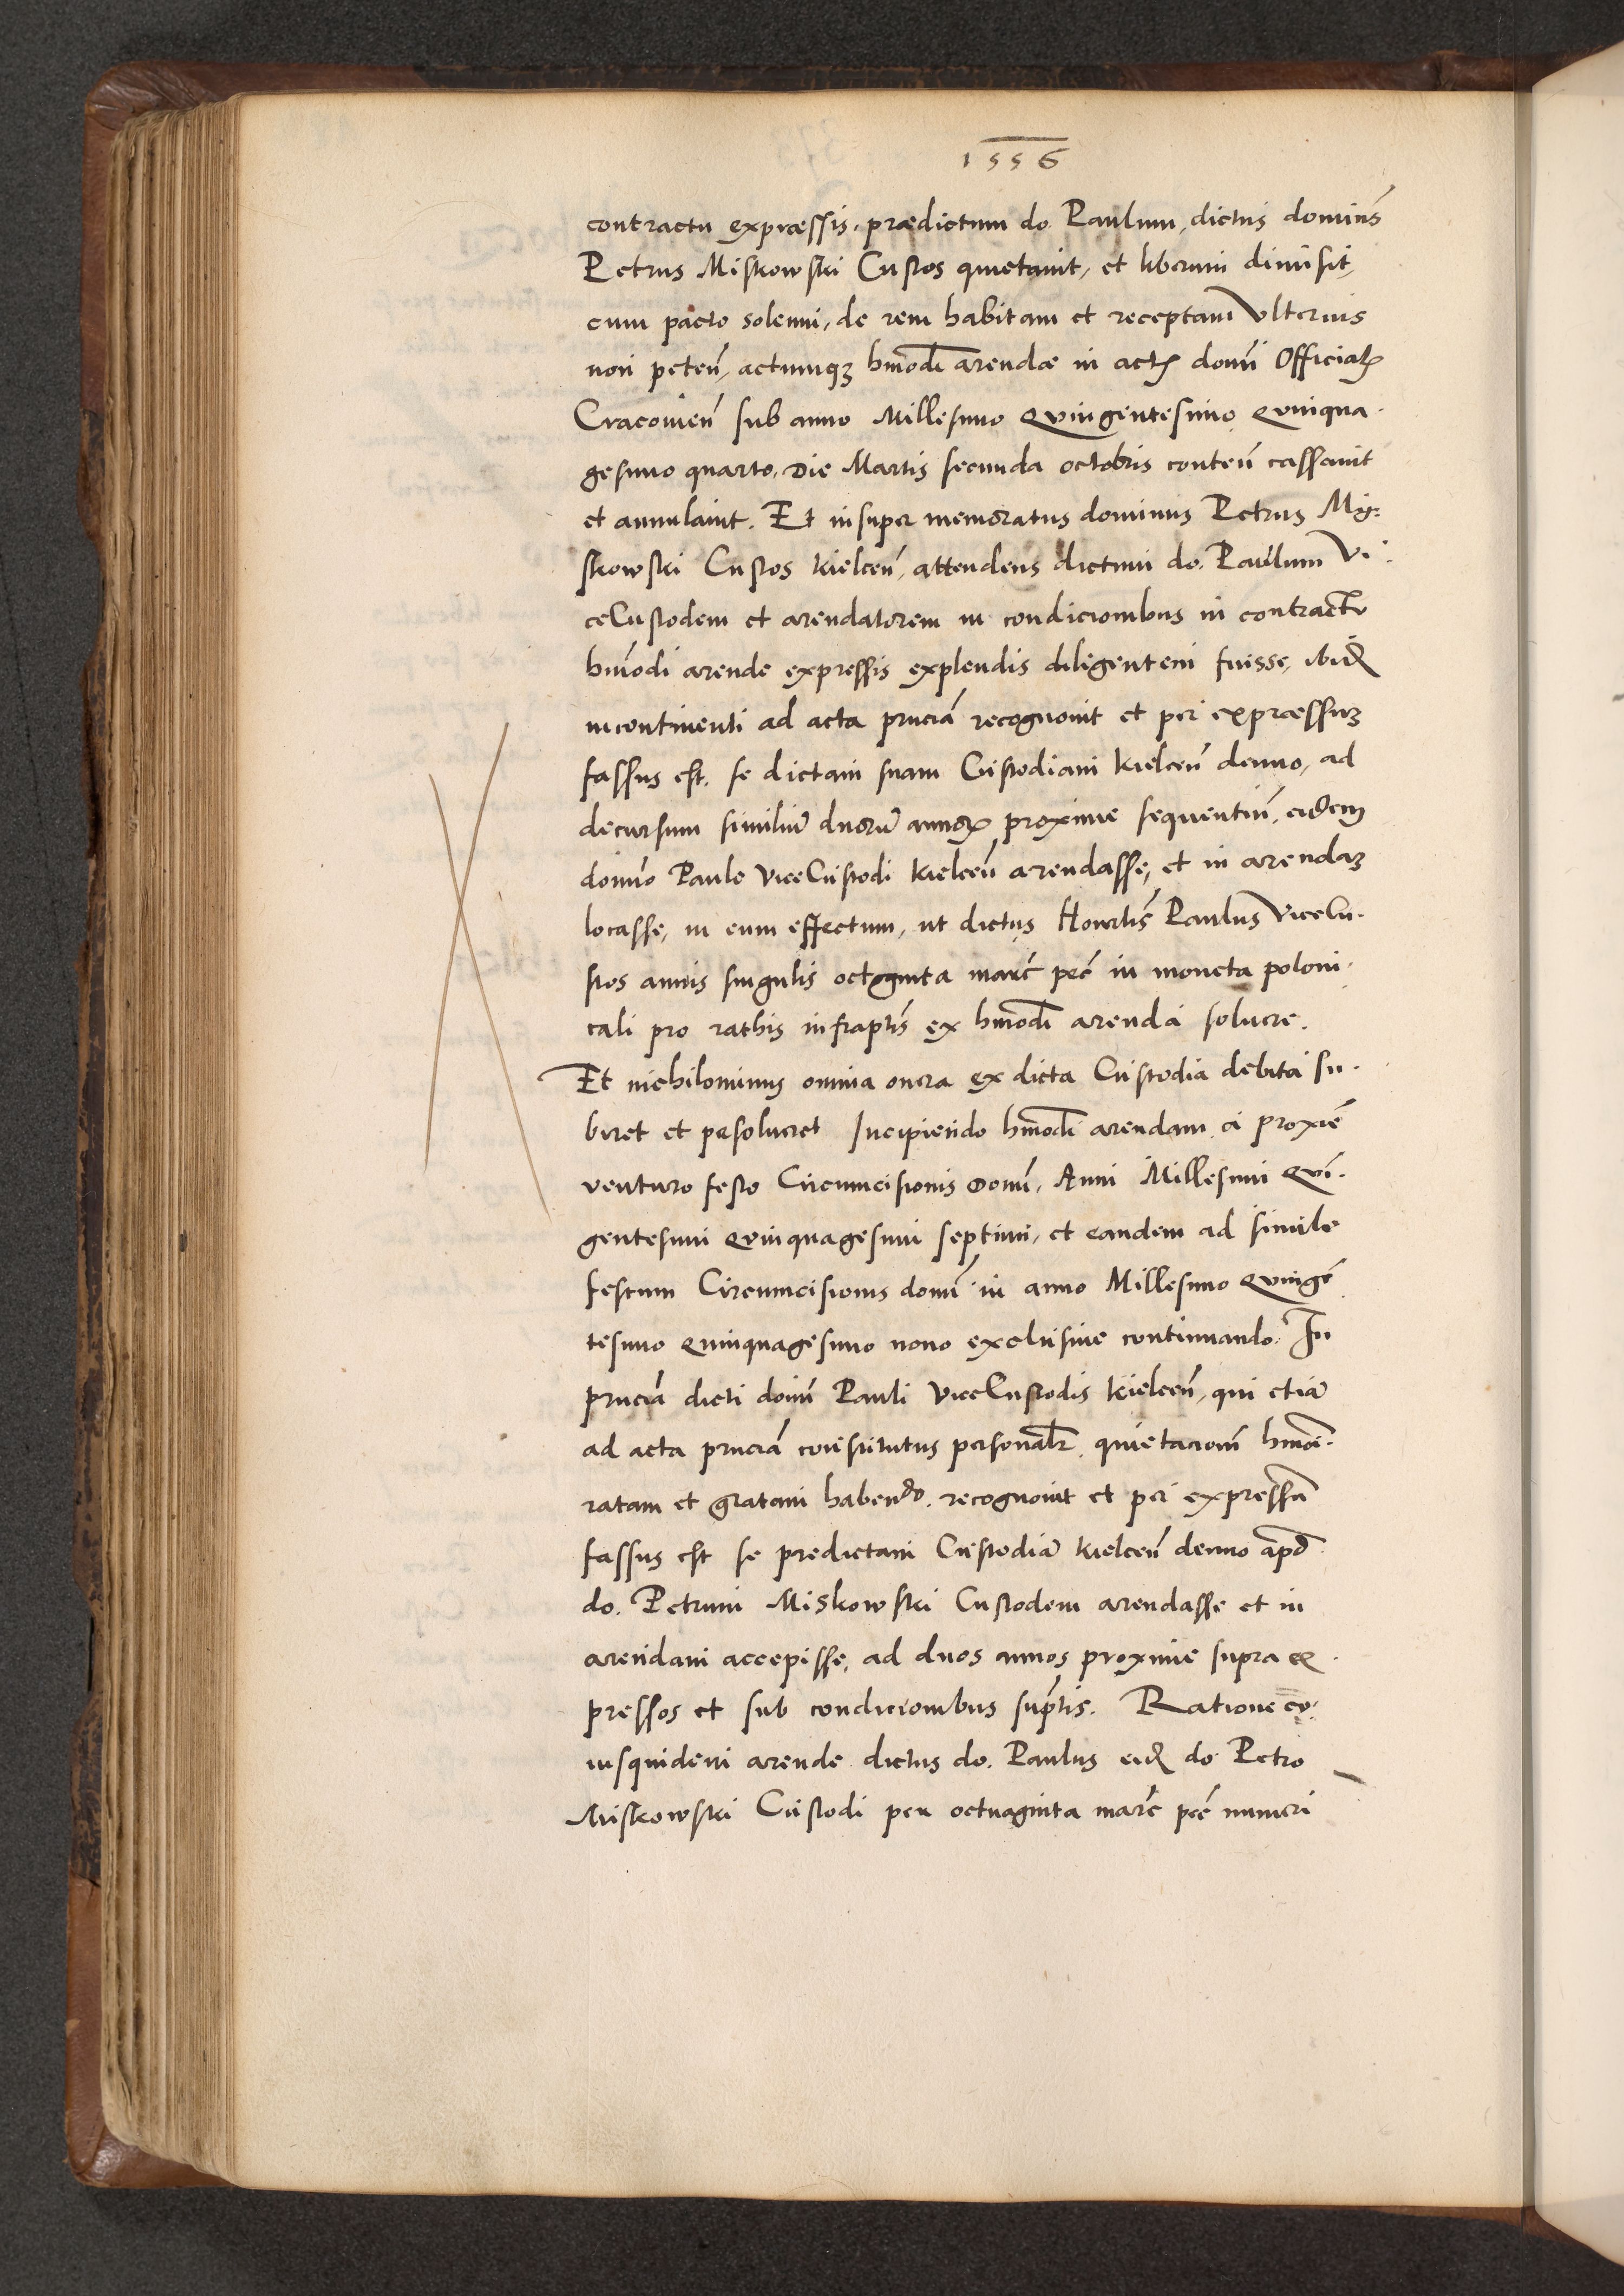 1556
contractu expræssis. prædictum do. Paulum, dictus dominꝰ
Petrus Miskowski Custos quietauit, et liberum dimisit,
cum pacto solenni, de rem habitam et receptam Vlterius
non peteñ, actumqꝫ hm̄odi arendæ in actꝭ domī Officialꝭ
Cracouieñ sub anno Millesimo Qvingentesimo Qvinqua-
gesimo quarto, Die Martis secunda octobris conteñ cassauit
et annulauit. Et insuper memoratus dominus Petrus Mis-
skowski Custos kielceñ, attendens dictum do. Paulum Vi-
ceCustodem et arendatorem in condicionibus in contractu
hm̄odi arende expressis explendis diligentem fuisse, ibidꝭ
incontinenti ad acta pn̄ciā recognouit et per expræssuꝫ
fassus est. se dictam suam Custodiam kielceñ denuo, ad
decursum similiū duorū annorꝝ proxime sequentiū, eidem
domīo Paulo ViceCustodi kielceñ arendasse, et in arendaꝫ
locasse, in eum effectum, ut dictus Honorlis Paulus ViceCu-
stos annis singulis octoginta marc̄ pec̄ in moneta poloni-
cali pro rathis infraptis ex hm̄odi arenda soluere.
Et nichilominus omnia onera ex dicta Custodia debita su-
biret et persolueret Incipiendo hm̄odi arendam a proxiē
venturo festo Circumcisionis Domī, Anni Millesimi Qvī-
gentesimi Qvinquagesimi septimi, et eandem ad simile
festum Circumcisionis domī in anno Millesimo Qvingē
tesimo Quinquagesimo nono exclusiue continuando. In
pn̄ciā dicti domī Pauli ViceCustodis kielceñ, qui etiā
ad acta pn̄ciā constitutus personalr̄. quietacionī hm̄oi-
ratam et gratam habendo. recognouit et per expressū
fassus est se predictam Custodiā kielceñ denuo apd̄
do. Petrum Miskowski Custodem arendasse et in
arendam accepisse, ad duos annos proxime supra ex-
pressos et sub condicionibus sup̄tis. Ratione cu-
iusquidem arende dictus do. Paulus eidꝭ do. Petro
Miskowski Custodi per octuaginta marc̄ pec̄ numeri